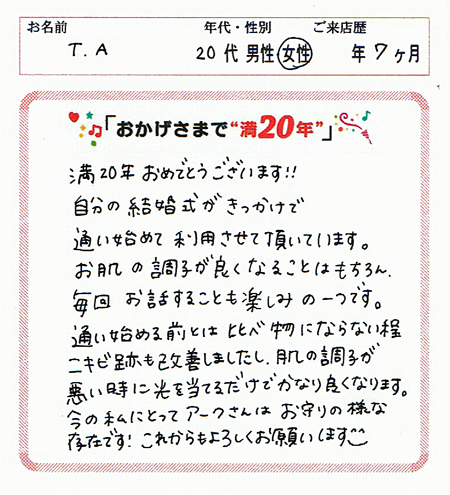 お名前 年代・性別 ご来店歴
T.A 20代 男性 女性 年7ヶ月
「おかげさまで“満20年”」
満20年おめでとうございます!!
自分の結婚式がきっかけで
通い始めて利用させて頂いています。
お肌の調子が良くなることはもちろん、
毎回 お話することも楽しみの一つです。
通い始める前とは比べ物にならない程
ニキビ跡も改善しましたし、肌の調子が
悪い時に光を当てるだけでかなり良くなります。
今の私にとってアークさんはお守りの様な
存在です! これからもよろしくお願いします